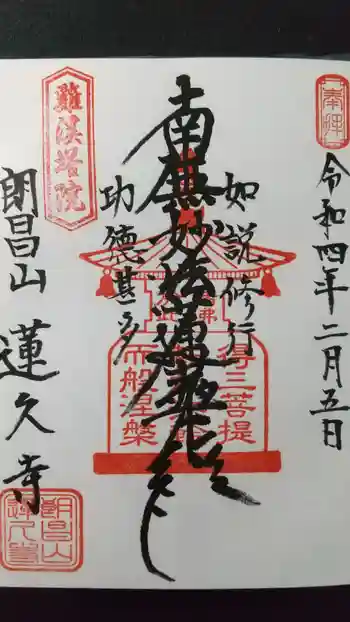 奉拝
令和四年二月五日
如説修行
南無妙法蓮華経
功徳甚多
得三菩提
而般涅槃
難渓塔院
朗昌山 蓮久寺